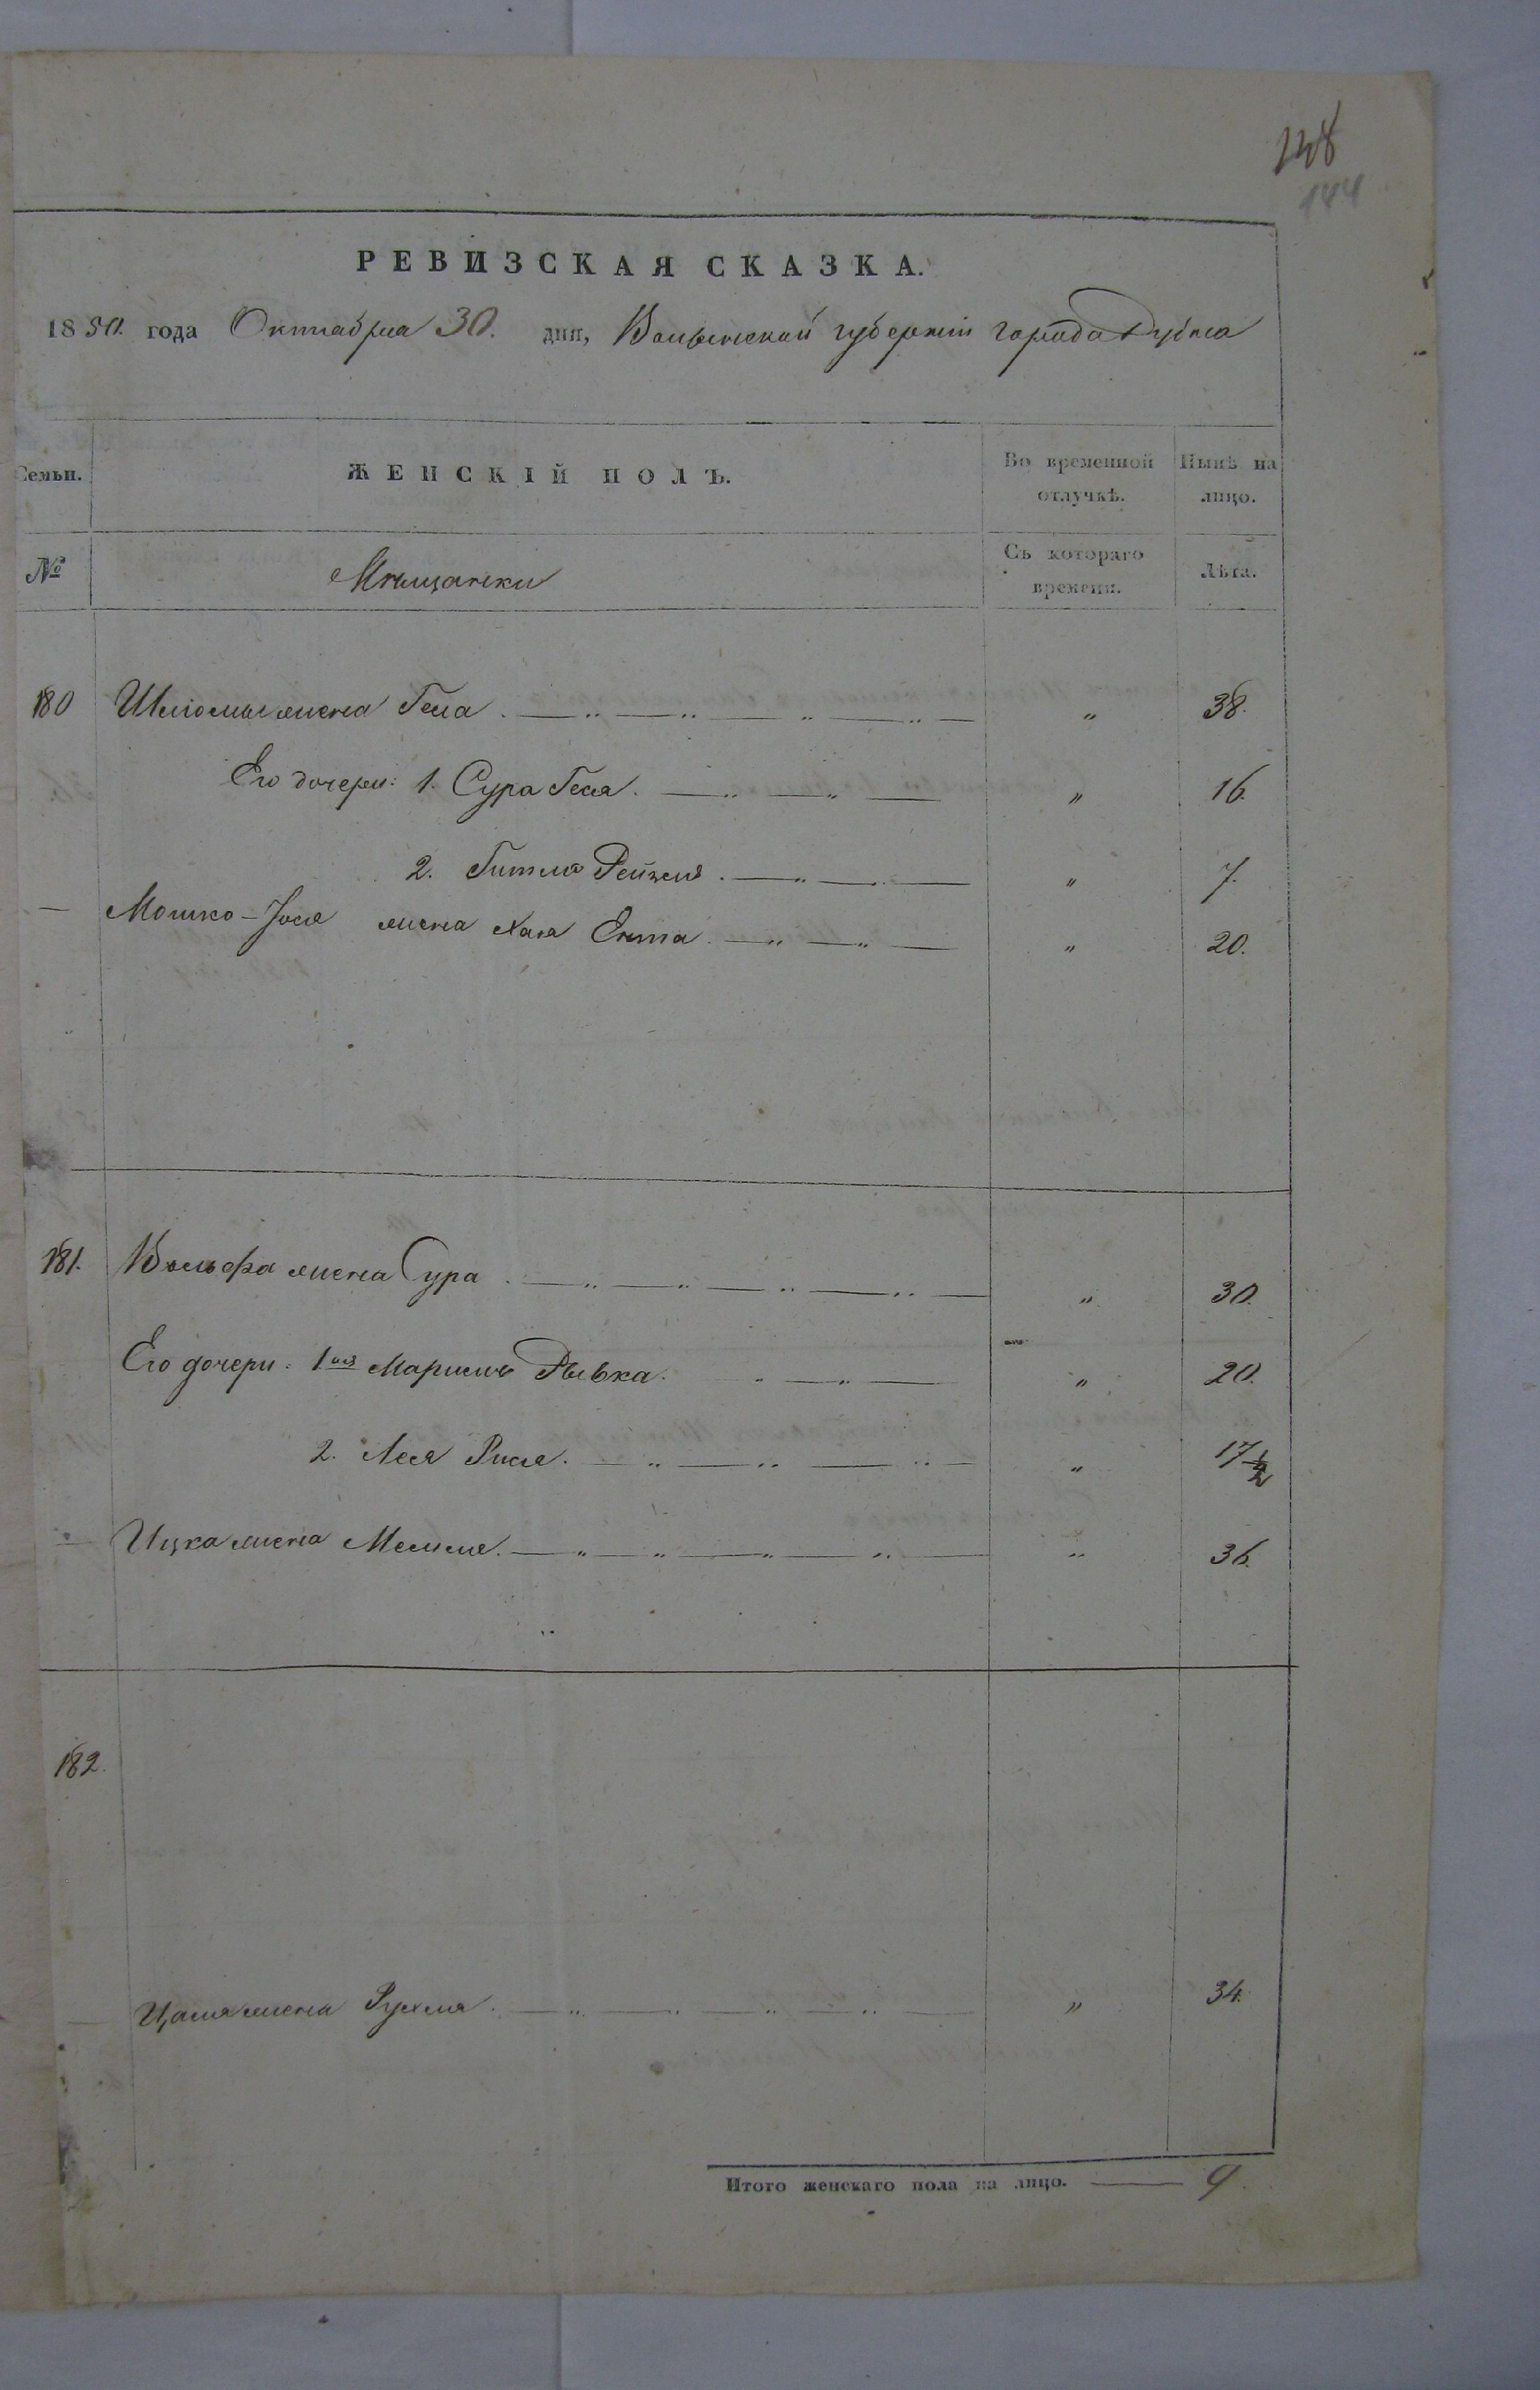 138
144
РЕВИЗСКАЯ СКАЗКА.
1850. года Октября 30. дня, Волынской губерніи города Дубна
Семьи. ЖЕНСКІЙ ПОЛЪ. Во временной отлучкѣ. Нынѣ на лицо.
№ Мѣщанки Съ котораго времени. Лѣта.
180 Шліомы жена Геля . — „ — „ — „ — „ — „ 38.
Его дочери: 1. Сура Геся . — „ — „ — „ 16.
2. Гитля Рейзля . — „ — „ — „ 7.
— Мошко-Іося жена Хая Ента . — „ — „ — „ 20.
181. Вольфа жена Сура . — „ — „ — „ — „ — „ 30.
Его дочери: 1ая Марьямъ Рывка . „ — „ — „ 20.
2. Лея Рися . — „ — „ — „ — „ 17 1/2
— Ицка жена Мемля . — „ — „ — „ — „ — „ 36.
182.
— Цаля жена Рухля . — „ — „ — „ — „ — „ 34.
Итого женскаго пола на лицо. — 9.